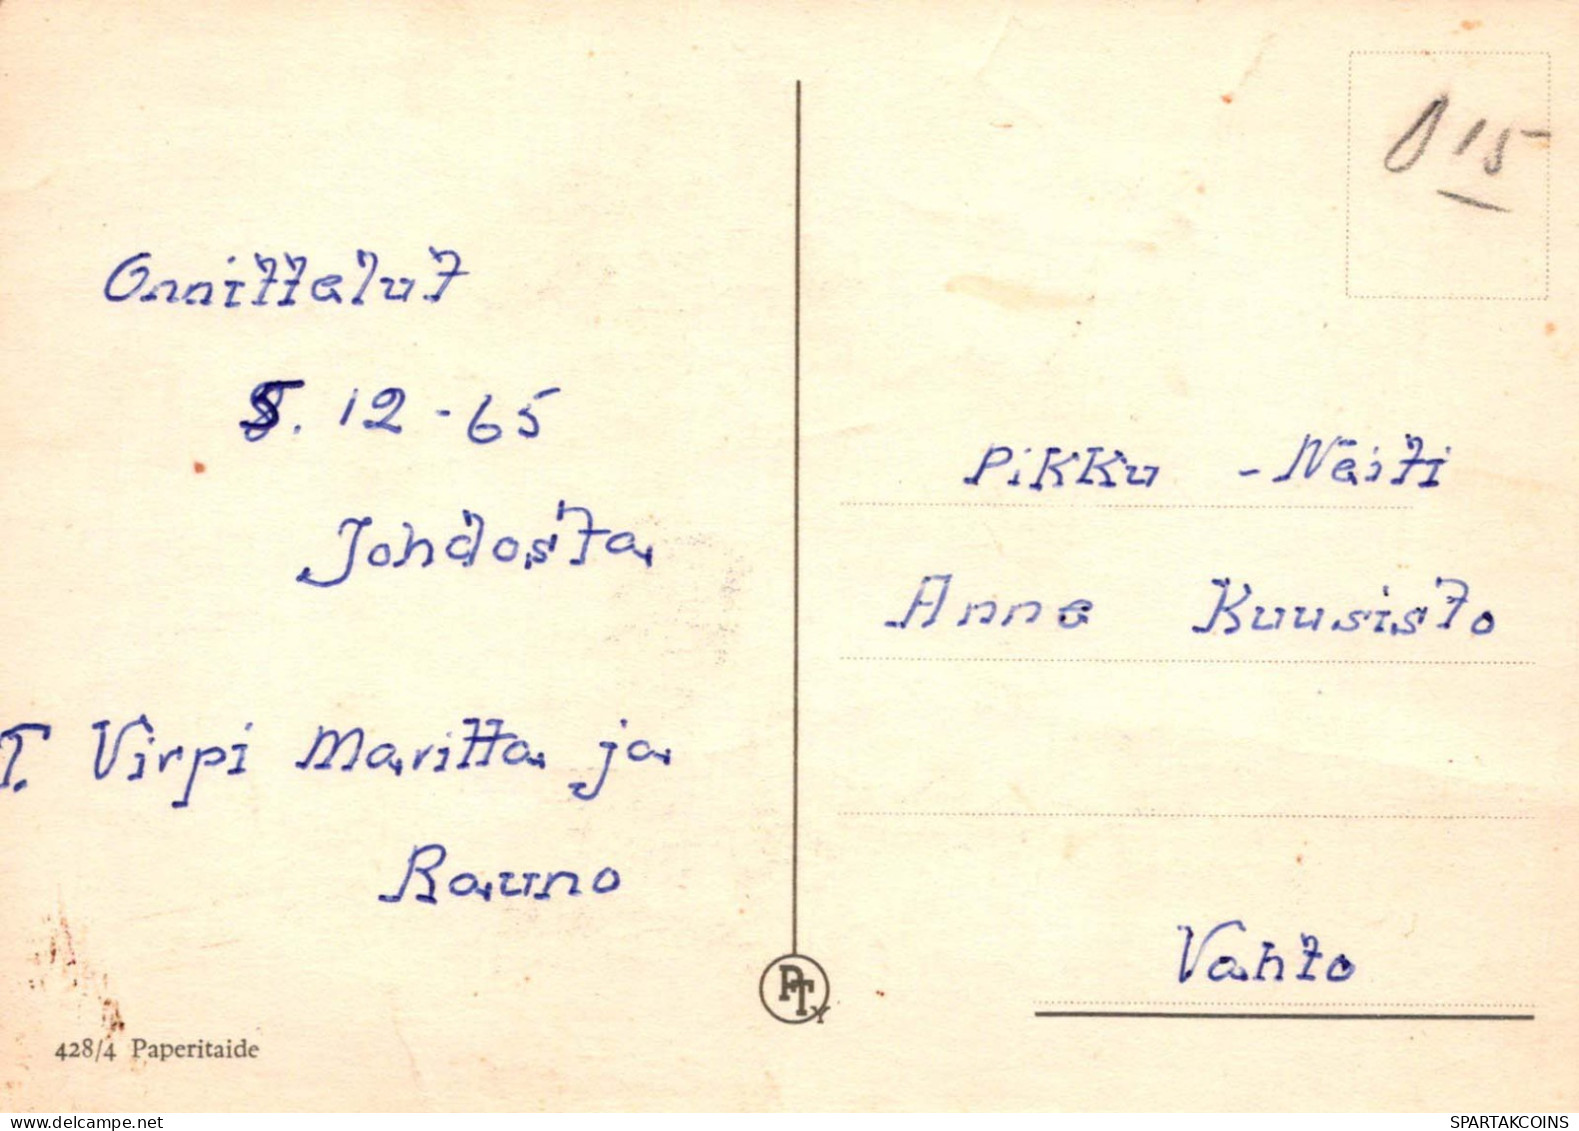 Onnittelut
5. 12 - 65
Johdosta
T. Virpi Maritta ja
Rauno
428/4 Paperitaide
PTY
15
Pikku - Neiti
Anne Kuusisto
Vahto
delcampe.net
SPARTAKCOINS